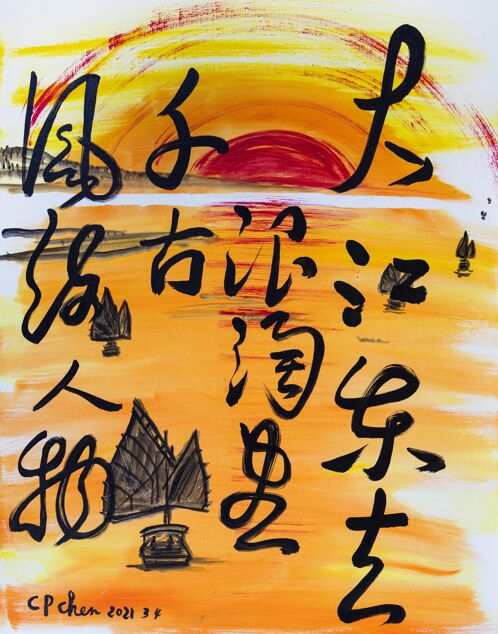 大江东去
浪淘盡
千古
風流人物
CP chen 2021 3 4